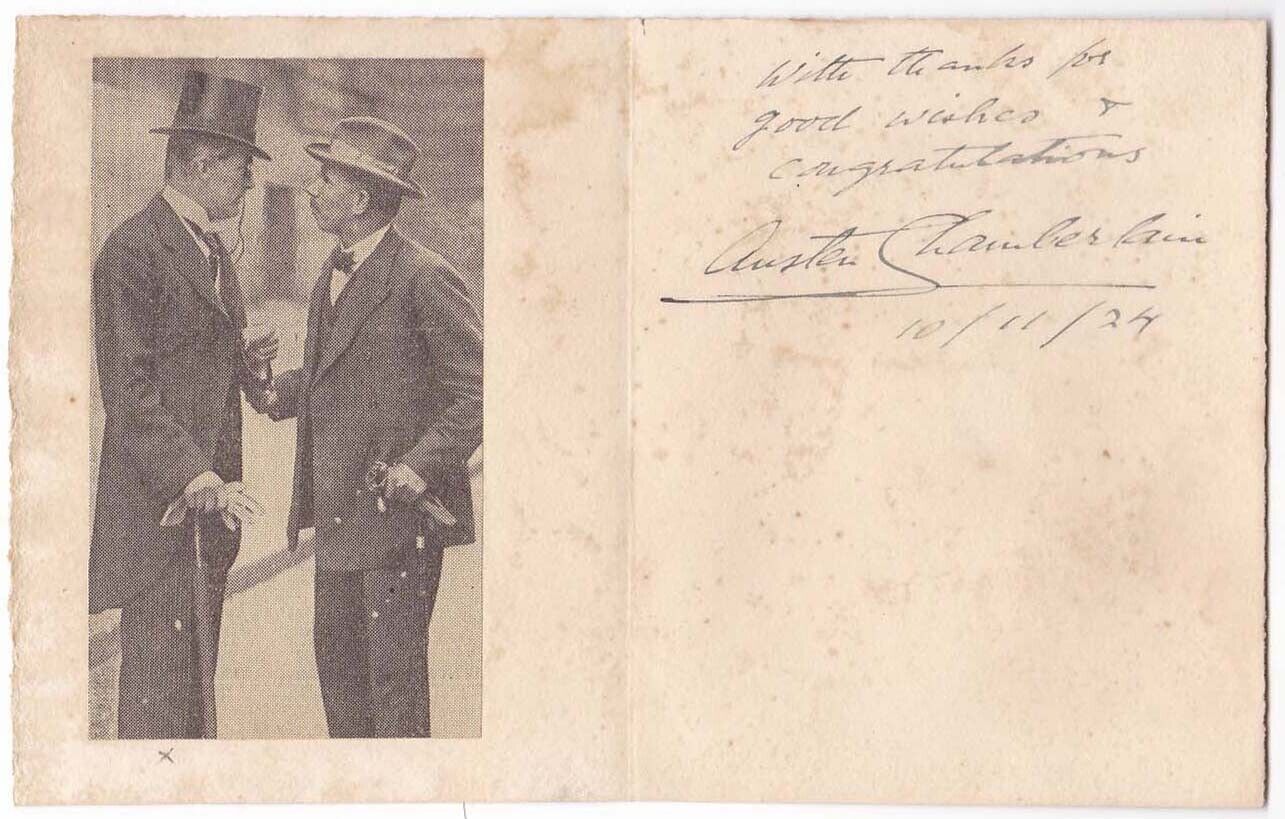 With thanks for
good wishes &
congratulations
Austen Chamberlain
10/11/24
x